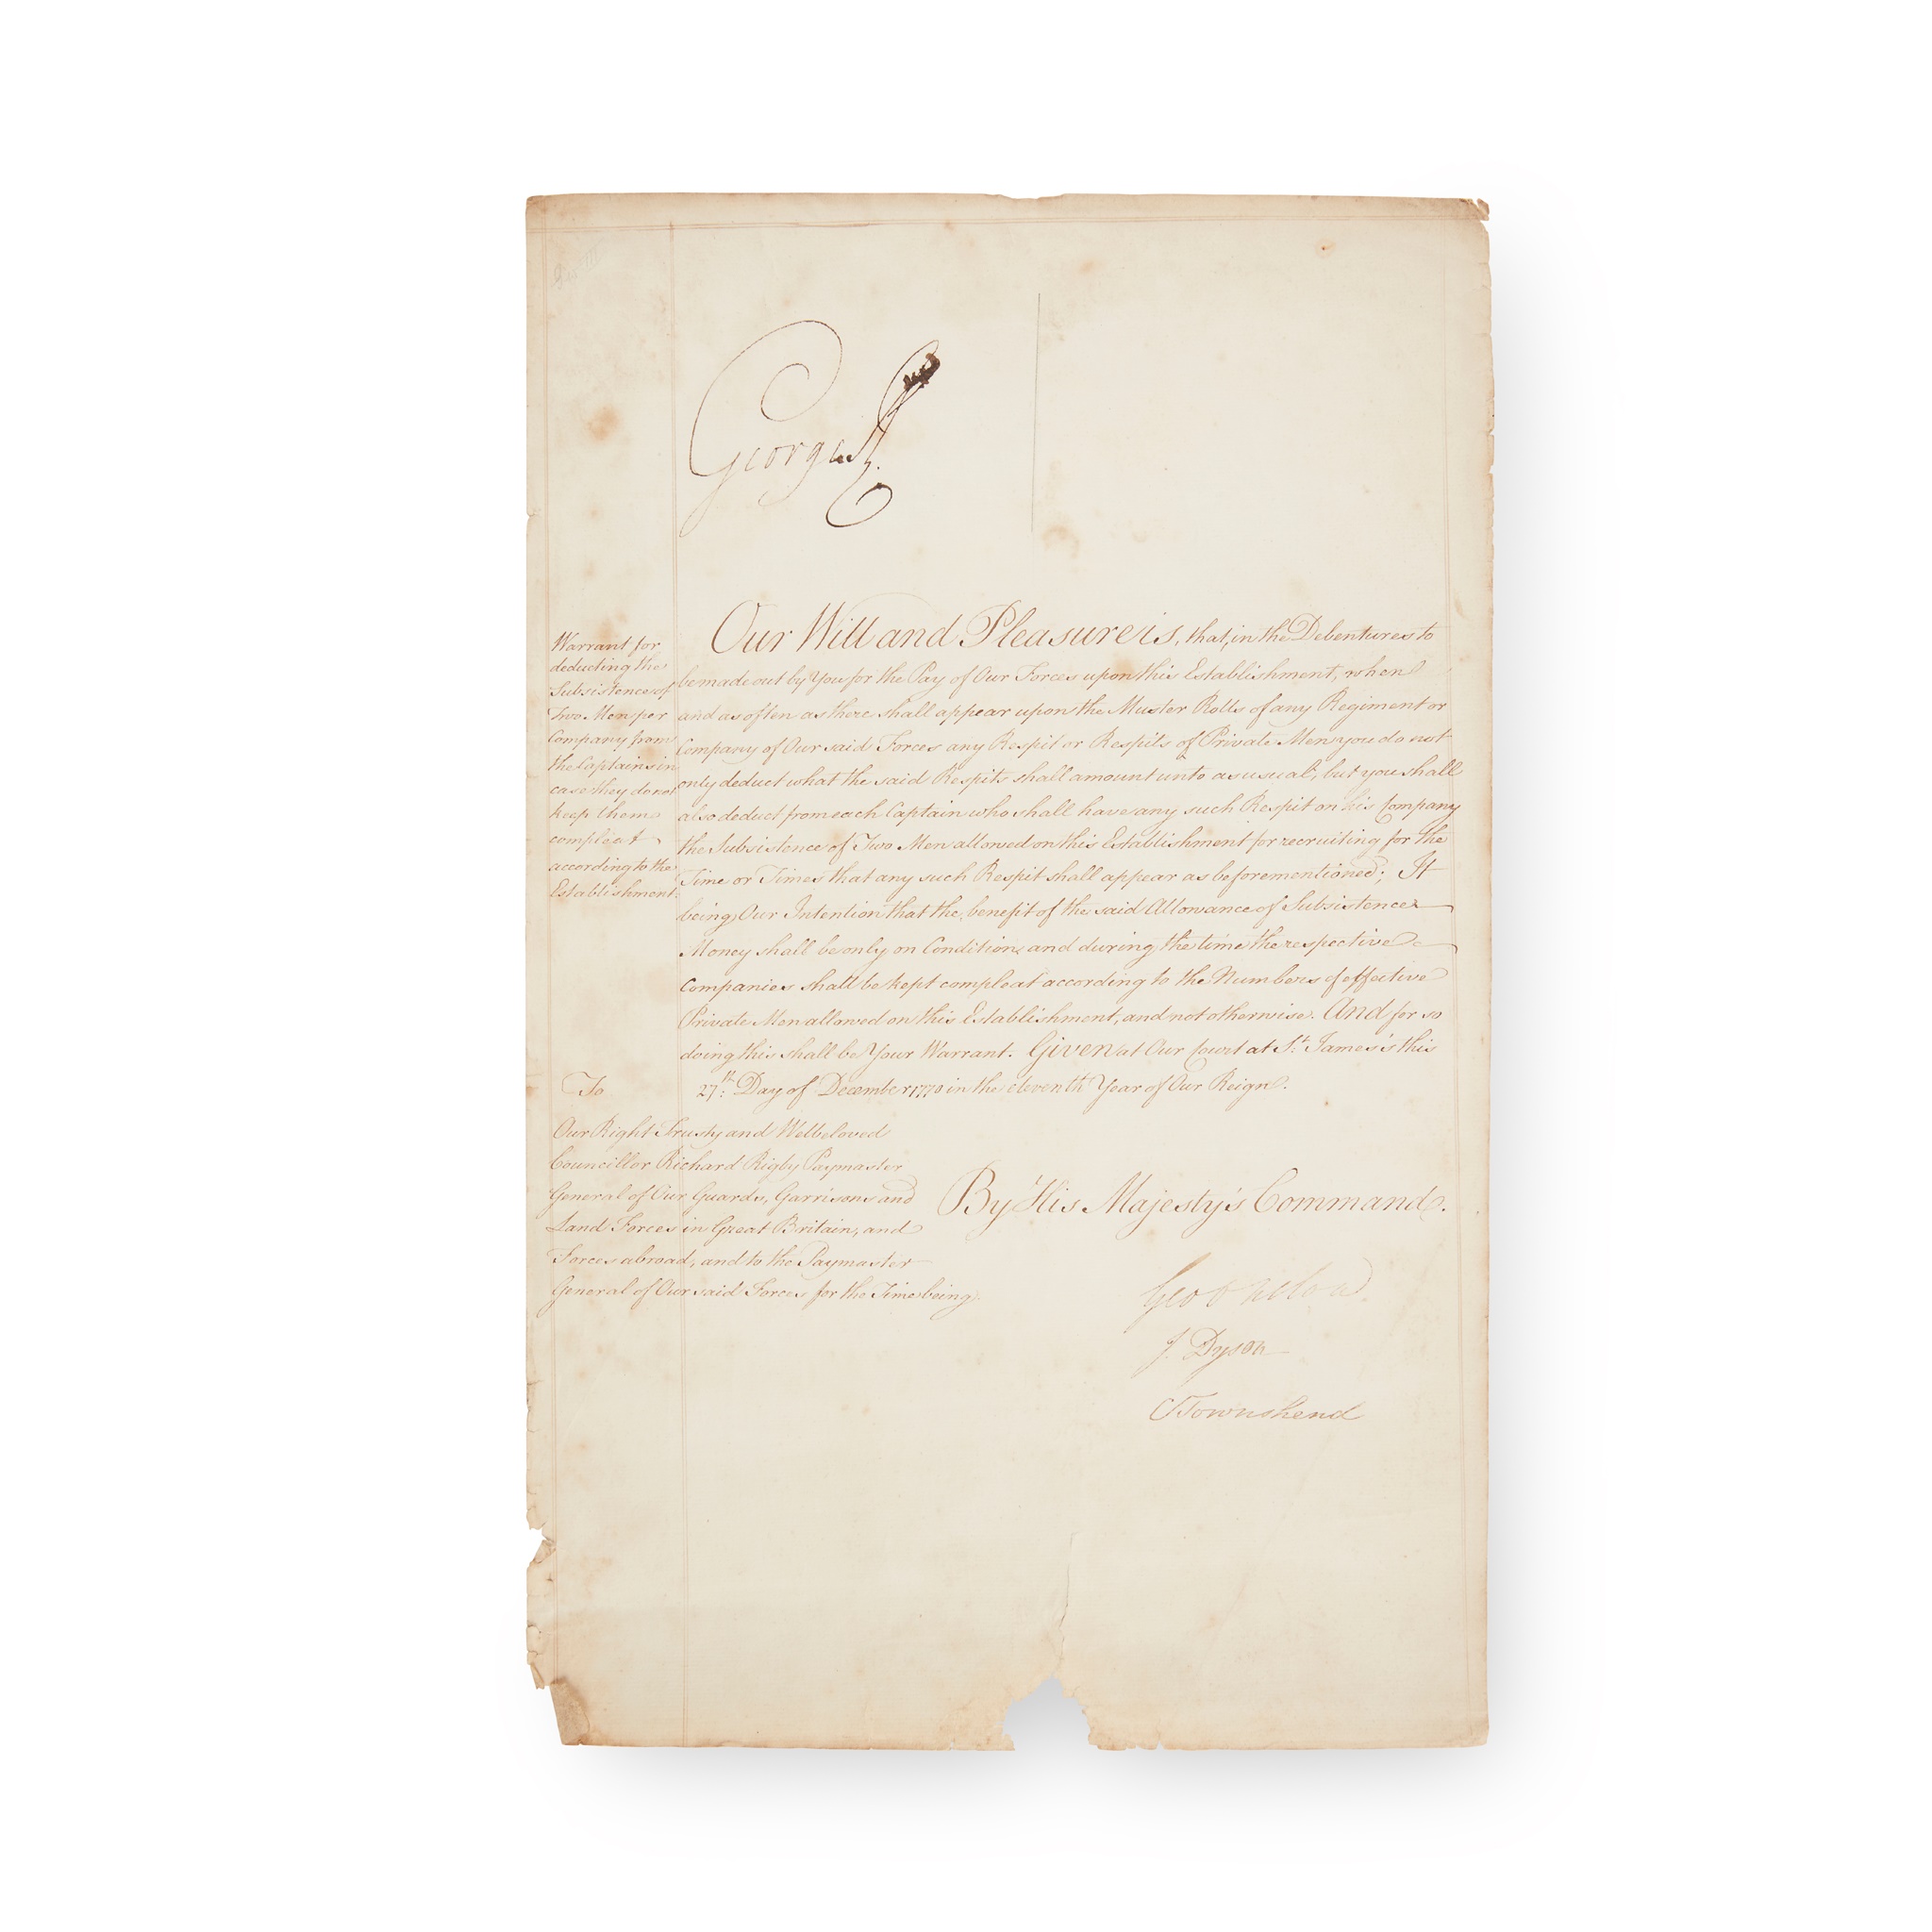 Geo III
George R.
Our Will and Pleasure is, that, in the Debentures to
be made out by You for the Pay of Our Forces upon this Establishment, when
and as often as there shall appear upon the Muster Rolls of any Regiment or
Company of Our said Forces any Respit or Respits of Private Men you do not
only deduct what the said Respits shall amount unto as usual, but you shall
also deduct from each Captain who shall have any such Respit on his Company
the Subsistence of Two Men allowed on this Establishment for recruiting for the
Time or Times that any such Respit shall appear as beforementioned; It
being Our Intention that the benefit of the said Allowance of Subsistence
Money shall be only on Condition, and during the time the respective
Companies shall be kept compleat according to the Numbers of effective
Private Men allowed on this Establishment, and not otherwise. And for so
doing this shall be Your Warrant. Given at Our Court at St. James's this
27th: Day of December 1770 in the eleventh Year of Our Reign.
Warrant for
deducting the
Subsistence of
Two Men per
Company from
the Captains in
case they do not
keep them
compleat
according to the
Establishment.
To
Our Right Trusty and Welbeloved
Councillor Richard Rigby Paymaster
General of Our Guards, Garrisons and
Land Forces in Great Britain, and
Forces abroad, and to the Paymaster
General of Our said Forces for the Time being.
By His Majesty's Command.
Geo Onslow.
J. Dyson
C Townshend